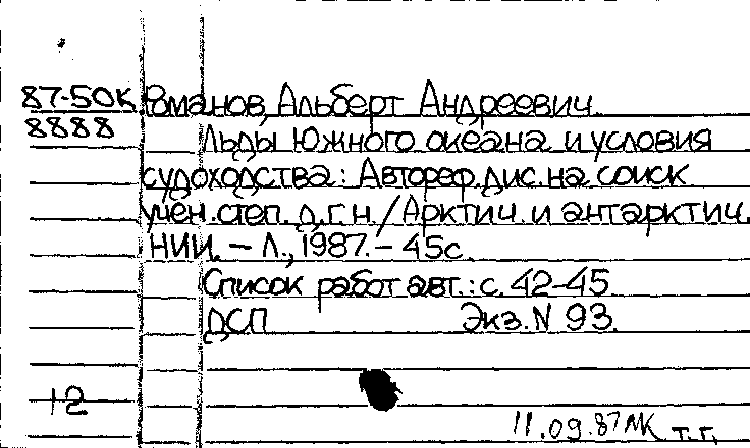 87-50К Романов, Альберт Андреевич.
8888
Льды Южного океана и условия
судоходства: Автореф. дис. на соиск
учен. степ. д.г.н. / Арктич. и антарктич.
НИИ. – Л., 1987. – 45с.
Список работ авт.: с. 42-45.
ДСП Экз. N 93.
12
11.09.87 МК т.г.